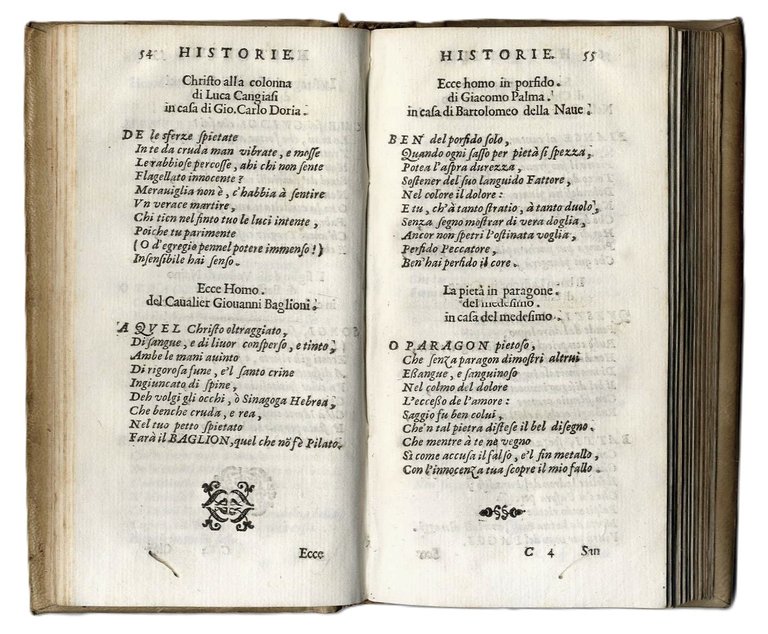 54 HISTORIE.
Chriſto alla colonna
di Luca Cangiaſi
in caſa di Gio. Carlo Doria.
DE le sferze ſpietate
In te da cruda man vibrate, e moſſe
Le rabbioſe percoſſe, ahi chi non ſente
Flagellato innocente?
Merauiglia non è, c'habbia à ſentire
Vn verace martire,
Chi tien nel finto tuo le luci intente,
Poiche tu parimente
(O d'egregio pennel potere immenſo!)
Inſenſibile hai ſenſo.
Ecce Homo.
del Caualier Giouanni Baglioni.
A QVEL Chriſto oltraggiato,
Di ſangue, e di liuor conſperſo, e tinto,
Ambe le mani auinto
Di rigoroſa fune, e'l ſanto crine
Ingiuncato di ſpine,
Deh volgi gli occhi, ò Sinagoga Hebrea,
Che benche cruda, e rea,
Nel tuo petto ſpietato
Farà il BAGLION, quel che nõ fè Pilato.
Ecce
HISTORIE. 55
Ecce homo in porfido.
di Giacomo Palma.
in caſa di Bartolomeo della Naue.
BEN del porfido ſolo,
Quando ogni ſaſſo per pietà ſi ſpezza,
Potea l'aſpra durezza,
Soſtener del ſuo languido Fattore,
Nel colore il dolore:
E tu, ch'à tanto ſtratio, à tanto duolo,
Senza ſegno moſtrar di vera doglia,
Ancor non ſpetri l'oſtinata voglia,
Perfido Peccatore,
Ben'hai perfido il core.
La pietà in paragone.
del medeſimo.
in caſa del medeſimo.
O PARAGON pietoſo,
Che ſenza paragon dimoſtri altrui
Eßangue, e ſanguinoſo
Nel colmo del dolore
L'ecceßo de l'amore:
Saggio fu ben colui,
Che'n tal pietra diſteſe il bel diſegno.
Che mentre à te ne vegno
Sì come accuſa il falſo, e'l fin metallo,
Con l'innocenza tua ſcopre il mio fallo.
C 4 San